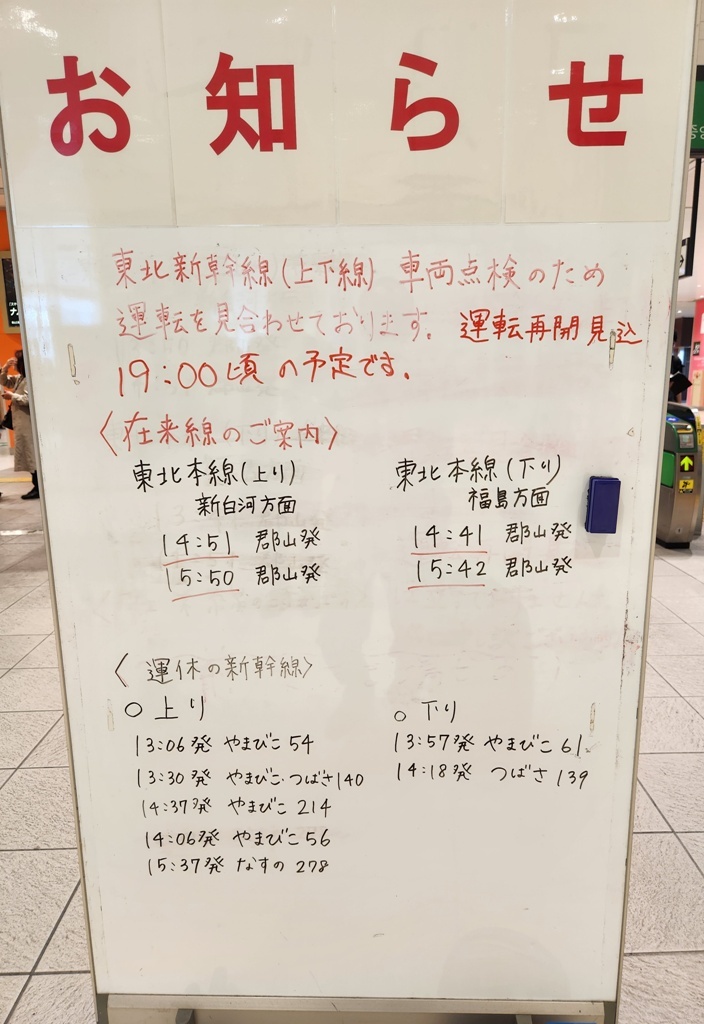 お知らせ
東北新幹線(上下線) 車両点検のため
運転を見合わせております。運転再開見込
19:00頃の予定です。
〈在来線のご案内〉
東北本線(上り)
新白河方面
14:51 郡山発
15:50 郡山発
東北本線(下り)
福島方面
14:41 郡山発
15:42 郡山発
〈運休の新幹線〉
○上り
13:06発 やまびこ54
13:30発 やまびこ・つばさ140
14:37発 やまびこ 214
14:06発 やまびこ56
15:37発 なすの 278
○下り
13:57発 やまびこ61
14:18発 つばさ 139